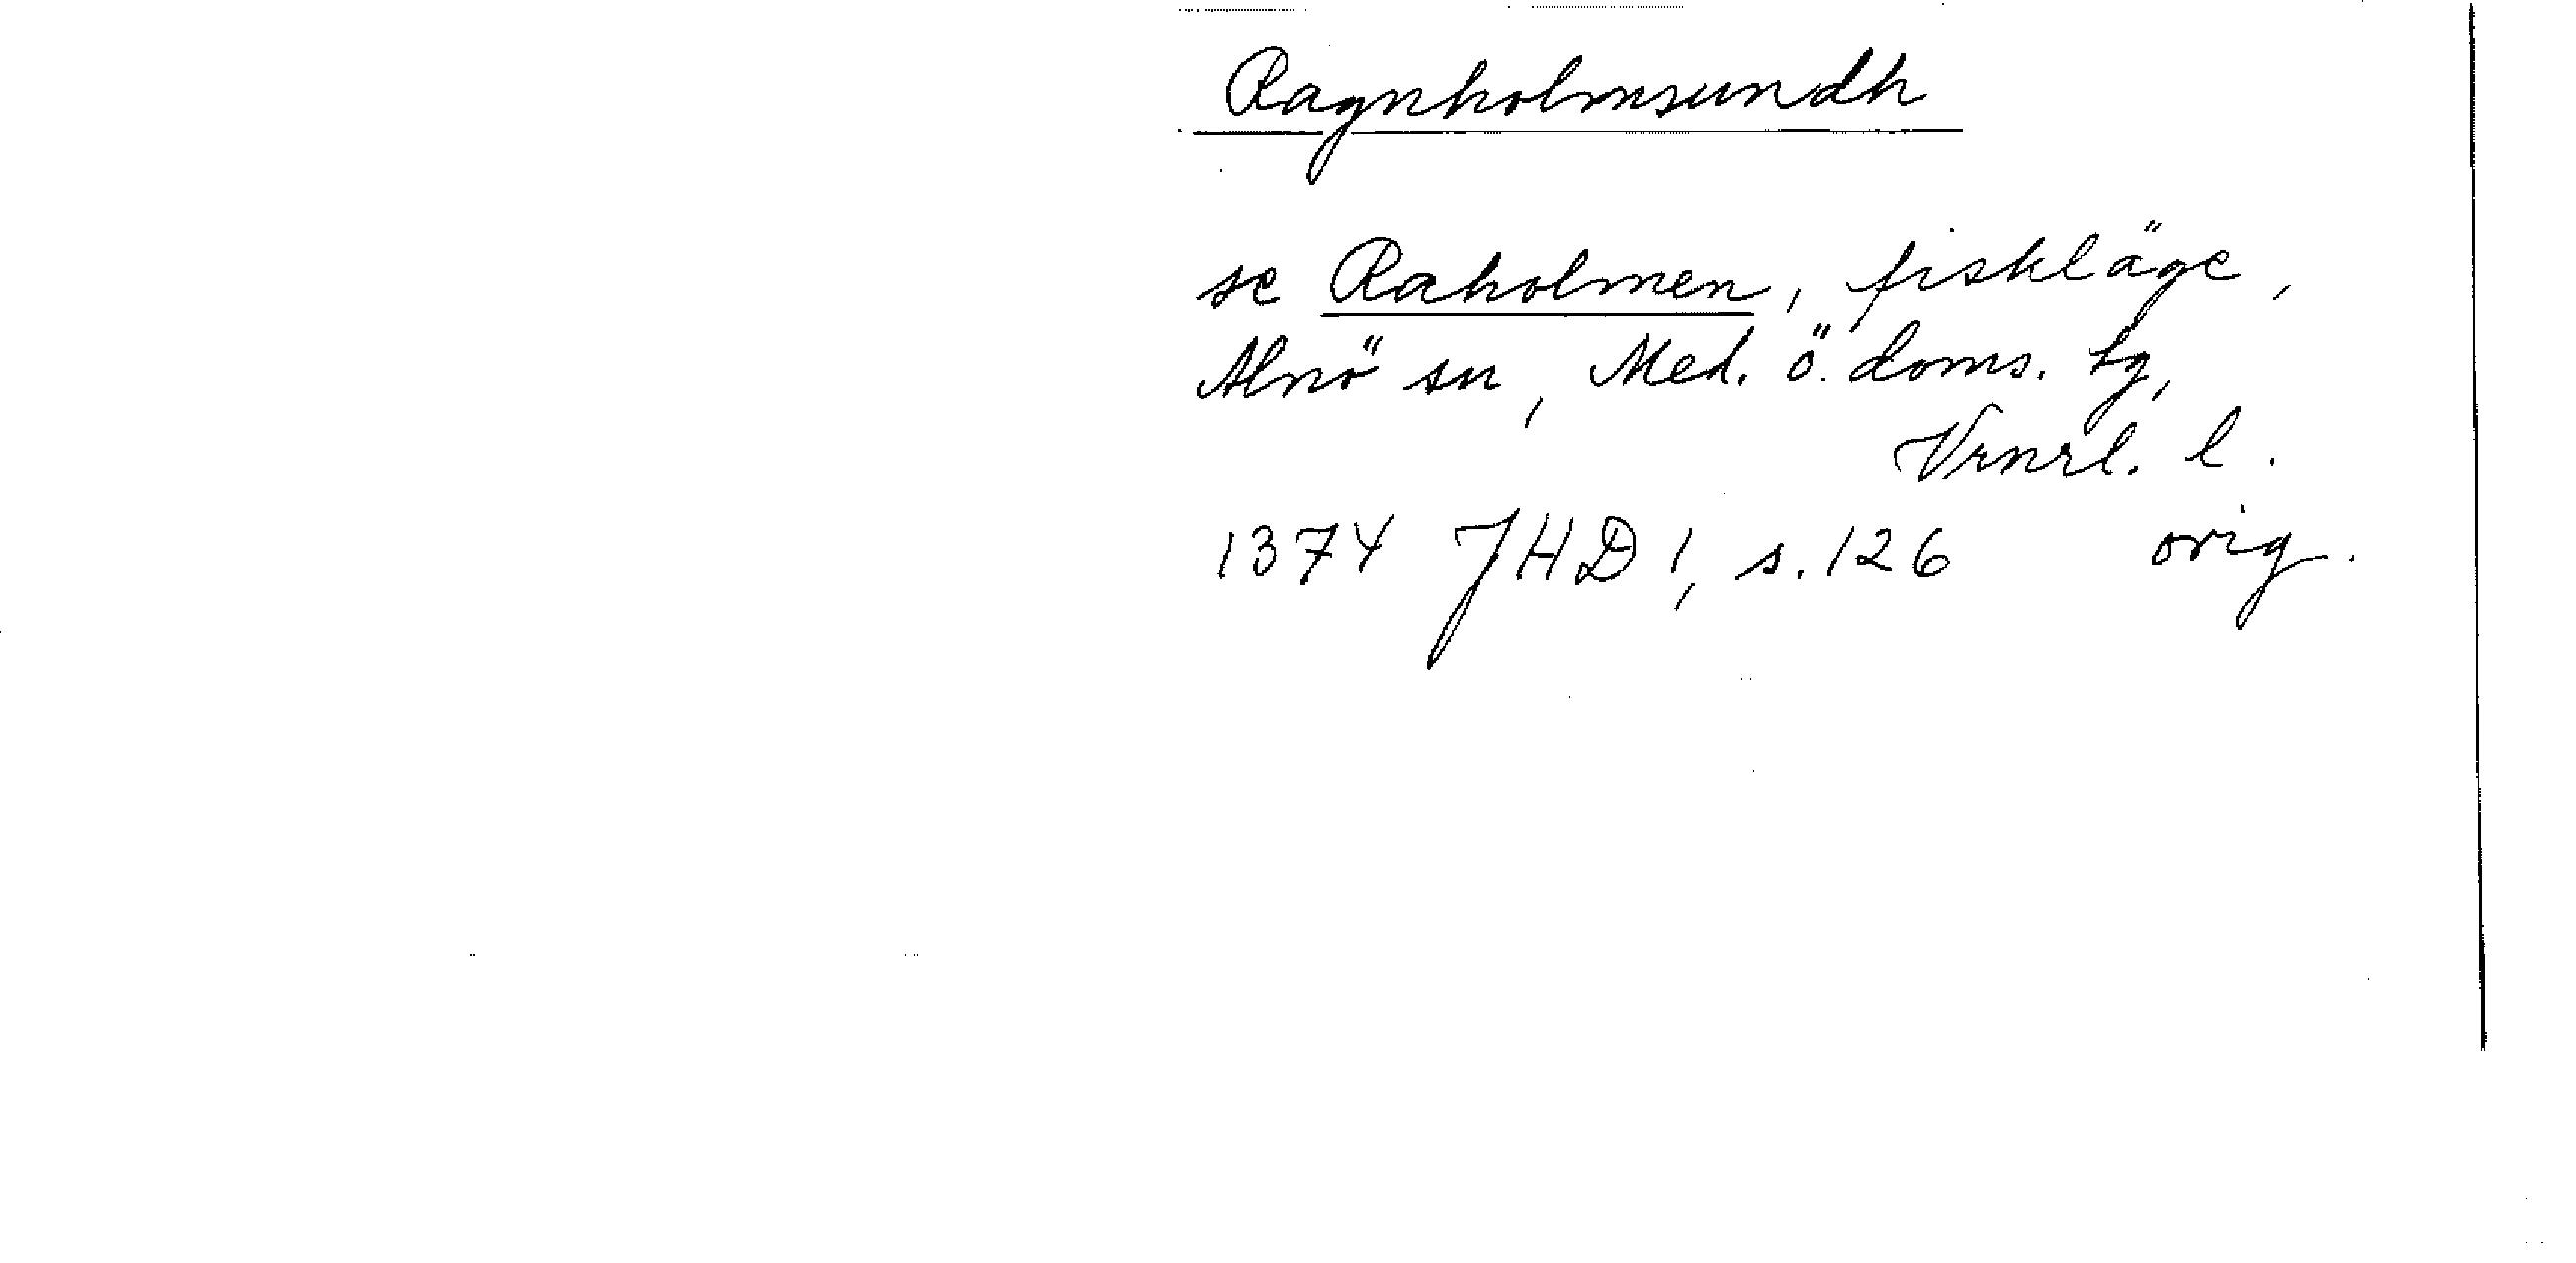 Ragnholmsundh
se Raholmen, fiskläge,
Alnö sn, Med. ö. doms. tg,
Vrnrl. l.
1374 JHD 1, s. 126 orig.